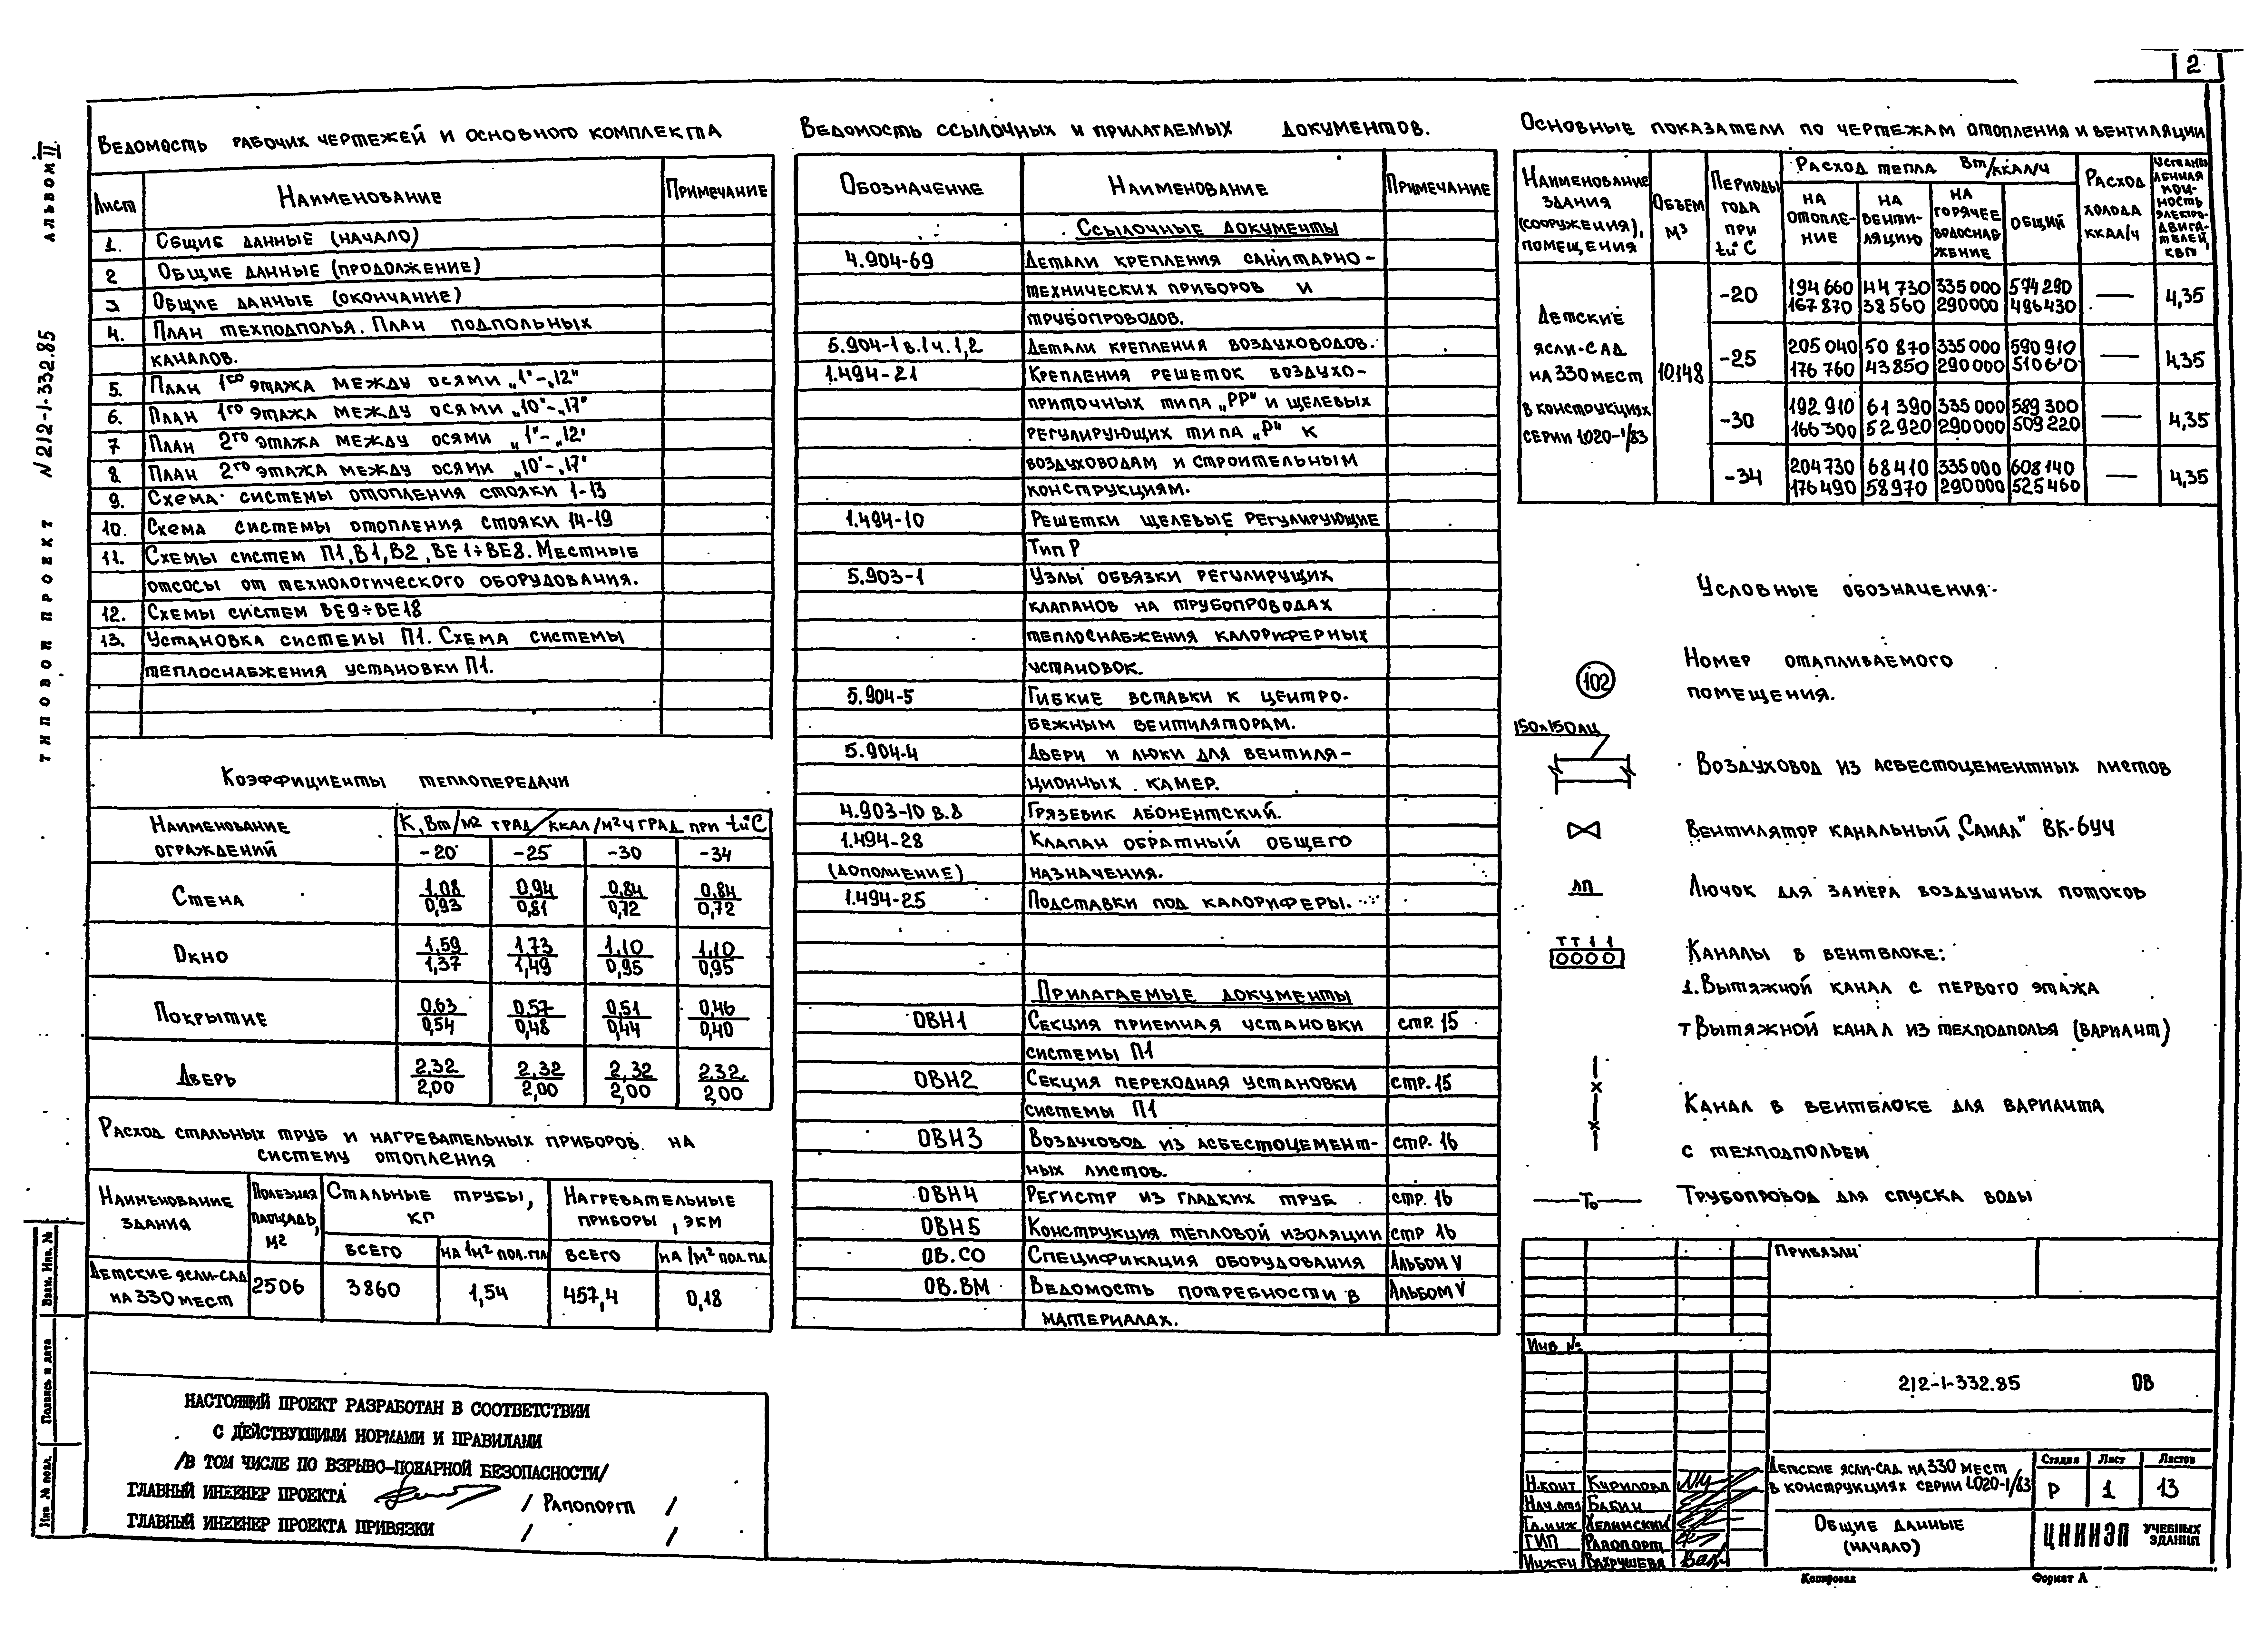 2
Альбом II
Типовой проект N 212-1-332.85
Ведомость рабочих чертежей и основного комплекта
Лист Наименование Примечание
1. Общие данные (начало)
2 Общие данные (продолжение)
3. Общие данные (окончание)
4. План техподполья. План подпольных
каналов.
5. План 1го этажа между осями „1"-„12"
6. План 1го этажа между осями „10"-„17"
7 План 2го этажа между осями „1"-„12"
8. План 2го этажа между осями „10"-„17"
9. Схема системы отопления стояки 1-13
10. Схема системы отопления стояки 14-19
11. Схемы систем П1, В1, В2, ВЕ1÷ВЕ8. Местные
отсосы от технологического оборудования.
12. Схемы систем ВЕ9÷ВЕ18
13. Установка системы П1. Схема системы
теплоснабжения установки П1.
Коэффициенты теплопередачи
Наименование ограждений К, Вт/м2 град / ккал/м2 ч град при tн°С
-20 -25 -30 -34
Стена 1,08/0,93 0,94/0,81 0,84/0,72 0,84/0,72
Окно 1,59/1,37 1,73/1,49 1,10/0,95 1,10/0,95
Покрытие 0,63/0,54 0,57/0,48 0,51/0,44 0,46/0,40
Дверь 2,32/2,00 2,32/2,00 2,32/2,00 2,32/2,00
Расход стальных труб и нагревательных приборов на
систему отопления
Наименование здания Полезная площадь, м2 Стальные трубы, кг Нагревательные приборы, экм
всего на 1м2 пол.пл. всего на 1м2 пол.пл.
Детские ясли-сад на 330 мест 2506 3860 1,54 457,4 0,18
НАСТОЯЩИЙ ПРОЕКТ РАЗРАБОТАН В СООТВЕТСТВИИ
С ДЕЙСТВУЮЩИМИ НОРМАМИ И ПРАВИЛАМИ
/В ТОМ ЧИСЛЕ ПО ВЗРЫВО-ПОЖАРНОЙ БЕЗОПАСНОСТИ/
ГЛАВНЫЙ ИНЖЕНЕР ПРОЕКТА / Рапопорт /
ГЛАВНЫЙ ИНЖЕНЕР ПРОЕКТА ПРИВЯЗКИ / /
Взам. Инв. №
Подпись и дата
Инв № подл.
Ведомость ссылочных и прилагаемых документов.
Обозначение Наименование Примечание
Ссылочные документы
4.904-69 Детали крепления санитарно-
технических приборов и
трубопроводов.
5.904-1 в.1 ч.1,2 Детали крепления воздуховодов.
1.494-21 Крепления решеток воздухо-
приточных типа „РР" и щелевых
регулирующих типа „Р" к
воздуховодам и строительным
конструкциям.
1.494-10 Решетки щелевые регулирующие
Тип Р
5.903-1 Узлы обвязки регулирущих
клапанов на трубопроводах
теплоснабжения калориферных
установок.
5.904-5 Гибкие вставки к центро-
бежным вентиляторам.
5.904-4 Двери и люки для вентиля-
ционных камер.
4.903-10 в.8 Грязевик абонентский.
1.494-28 Клапан обратный общего
(дополнение) назначения.
1.494-25 Подставки под калориферы.
Прилагаемые документы
ОВН1 Секция приемная установки стр. 15
системы П1
ОВН2 Секция переходная установки стр. 15
системы П1
ОВН3 Воздуховод из асбестоцемент- стр. 16
ных листов.
ОВН4 Регистр из гладких труб стр. 16
ОВН5 Конструкция тепловой изоляции стр 16
ОВ.СО Спецификация оборудования Альбом V
ОВ.ВМ Ведомость потребности в Альбом V
материалах.
Основные показатели по чертежам отопления и вентиляции
Наименование здания (сооружения), помещения Объем м3 Периоды года при tн°С Расход тепла Вт/ккал/ч Расход холода ккал/ч Установленная мощность электродвигателей, квт
на отопление на вентиляцию на горячее водоснабжение общий
Детские ясли-сад на 330 мест в конструкциях серии 1.020-1/83 10148
-20 194 660/167 870 44 730/38 560 335 000/290000 574 290/496430 — 4,35
-25 205 040/176 760 50 870/43 850 335 000/290000 590 910/510610 — 4,35
-30 192 910/166 300 61 390/52 920 335 000/290000 589 300/509 220 — 4,35
-34 204 730/176 490 68 410/58 970 335 000/290000 608 140/525 460 — 4,35
Условные обозначения:
102 Номер отапливаемого
помещения.
150х150 АЦ Воздуховод из асбестоцементных листов
Вентилятор канальный „Самал" ВК-6У4
ЛП Лючок для замера воздушных потоков
Т Т 1 1 Каналы в вентблоке:
1. Вытяжной канал с первого этажа
т Вытяжной канал из техподполья (вариант)
Канал в вентблоке для варианта
с техподпольем
То Трубопровод для спуска воды
Привязан
Инв №
212-1-332.85 ОВ
Н.конт Кирилова
Нач.отд Бабин
Гл.инж Хелинский
ГИП Рапопорт
Инжен Вахрушева
Детские ясли-сад на 330 мест
в конструкциях серии 1.020-1/83
Стадия Лист Листов
Р 1 13
Общие данные
(начало)
ЦНИИЭП УЧЕБНЫХ ЗДАНИЙ
Копировал Формат А